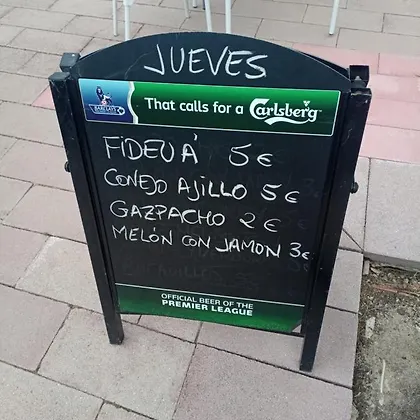 JUEVES
BARCLAYS
That calls for a Carlsberg
FIDEUÁ 5€
CONEJO AJILLO 5€
GAZPACHO 2€
MELÓN CON JAMON 3€
OFFICIAL BEER OF THE
PREMIER LEAGUE